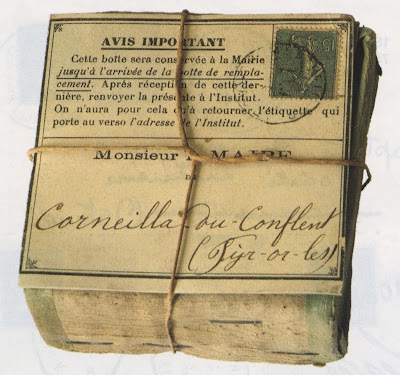 AVIS IMPORTANT
Cette botte sera conservée à la Mairie
jusqu'à l'arrivée de la botte de rempla-
cement. Après réception de cette der-
nière, renvoyer la présente à l'Institut.
On n'aura pour cela qu'à retourner l'étiquette qui
porte au verso l'adresse de l'Institut.
Monsieur MAIRE
Corneilla-du-Conflent
(Pyr-or-les)
15